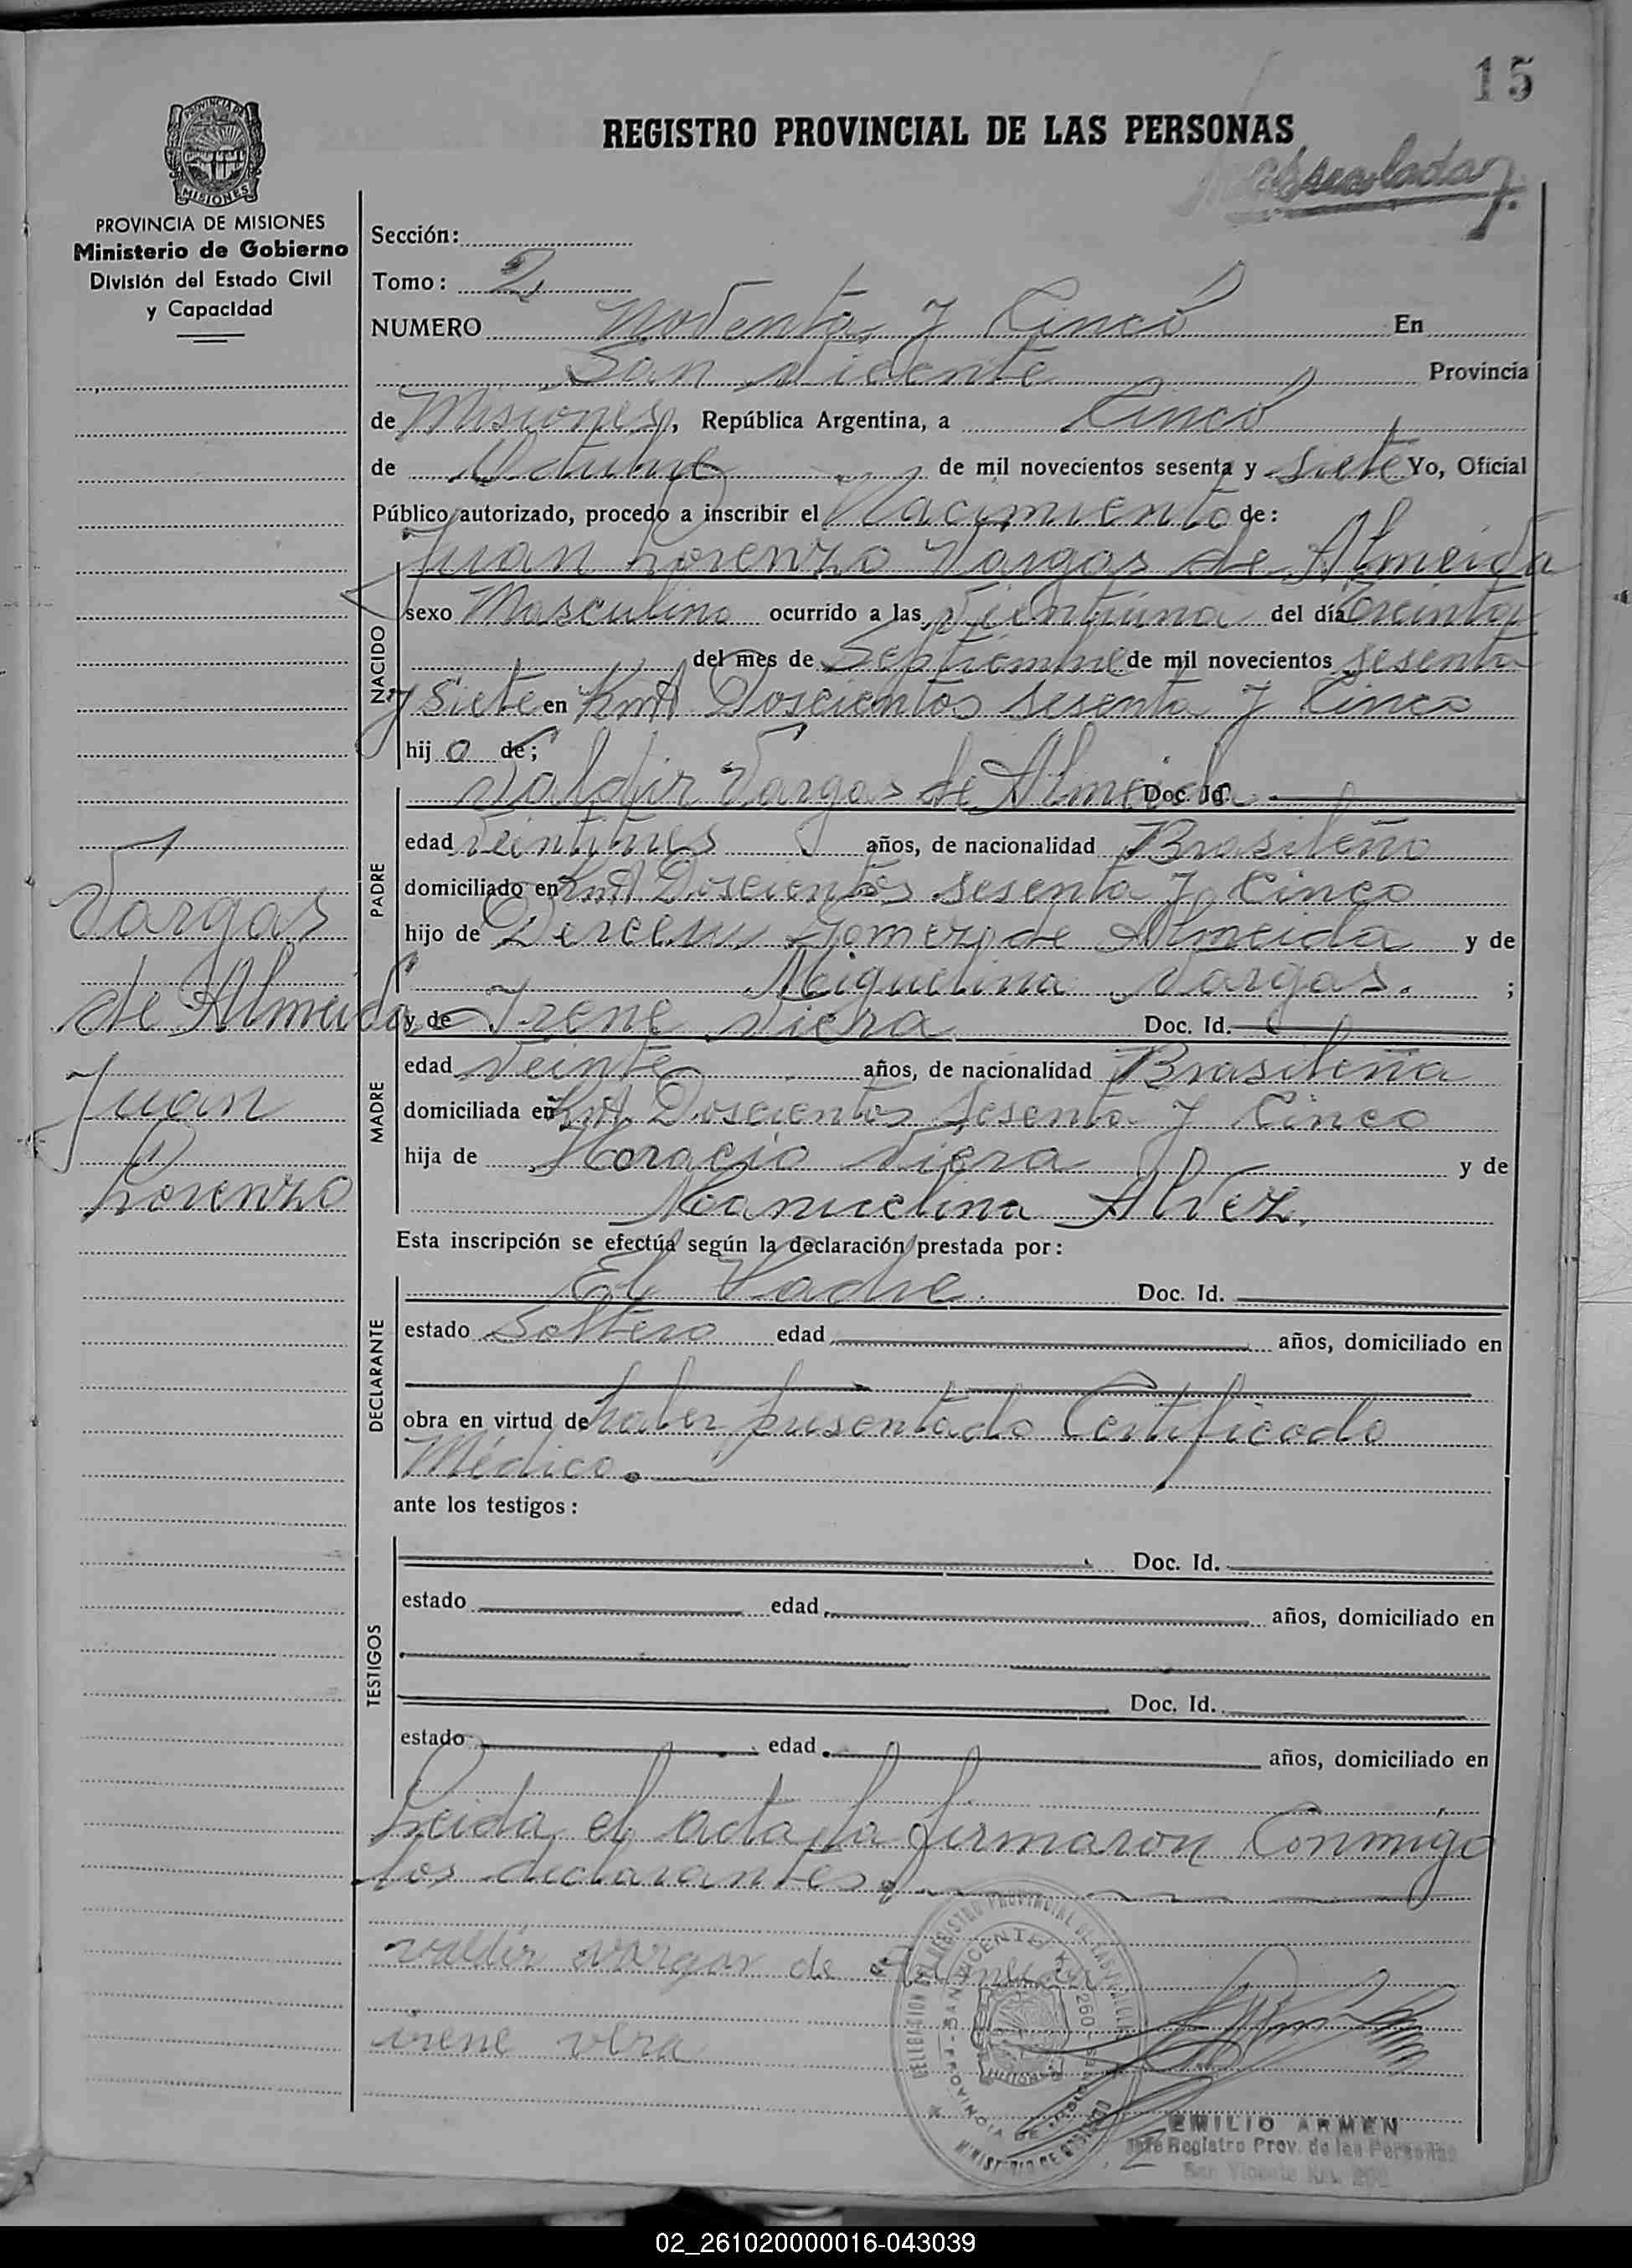 15
REGISTRO PROVINCIAL DE LAS PERSONAS
PROVINCIA DE MISIONES
Ministerio de Gobierno
División del Estado Civil
y Capacidad
Sección:
Tomo: 2
NUMERO Noventa y Cinco En
San Vicente Provincia
de Misiones, República Argentina, a Cinco
de Octubre de mil novecientos sesenta y siete Yo, Oficial
Público autorizado, procedo a inscribir el Nacimiento de:
Juan Lorenzo Vargas de Almeida
NACIDO
sexo Masculino ocurrido a las Veintiuna del día Treinta
del mes de Septiembre de mil novecientos sesenta
y Siete en Km Doscientos sesenta y Cinco
hijo de;
Valdir Vargas de Almeida Doc. Id.
PADRE
edad Veintitres años, de nacionalidad Brasileño
domiciliado en Km Doscientos sesenta y Cinco
hijo de Gomez de Almeida y de
Miguelina Vargas. ;
y de Irene Viera Doc. Id.
MADRE
edad Veinte años, de nacionalidad Brasileña
domiciliada en Km Doscientos sesenta y Cinco
hija de Horacio Viera y de
Manuelina Alvez.
Vargas
de Almeida
Juan
Lorenzo
Esta inscripción se efectúa según la declaración prestada por:
El Padre. Doc. Id.
DECLARANTE
estado Soltero edad años, domiciliado en
obra en virtud de haber presentado Certificado
Médico.
ante los testigos:
TESTIGOS
Doc. Id.
estado edad años, domiciliado en
Doc. Id.
estado edad años, domiciliado en
Leida el acta, la firmaron Conmigo
los declarantes.
valdir vargas de Almeida
irene vera
EMILIO ARMEN
Jefe Registro Prov. de las Personas
San Vicente Km. 260
02_261020000016-043039